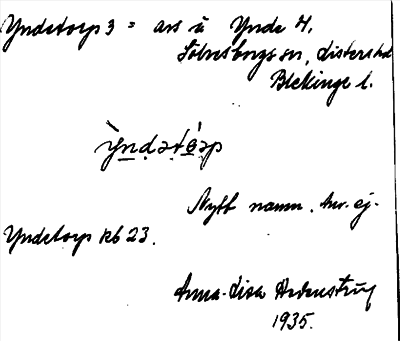 Yndetorp 3 = avs å Ynde 4,
Sölvesborgs sn, Listers hd
Blekinge l.
Ỳndətórp
Nytt namn. Anv. ej.
Yndetorp kb 23.
Anna-Lisa
1935.